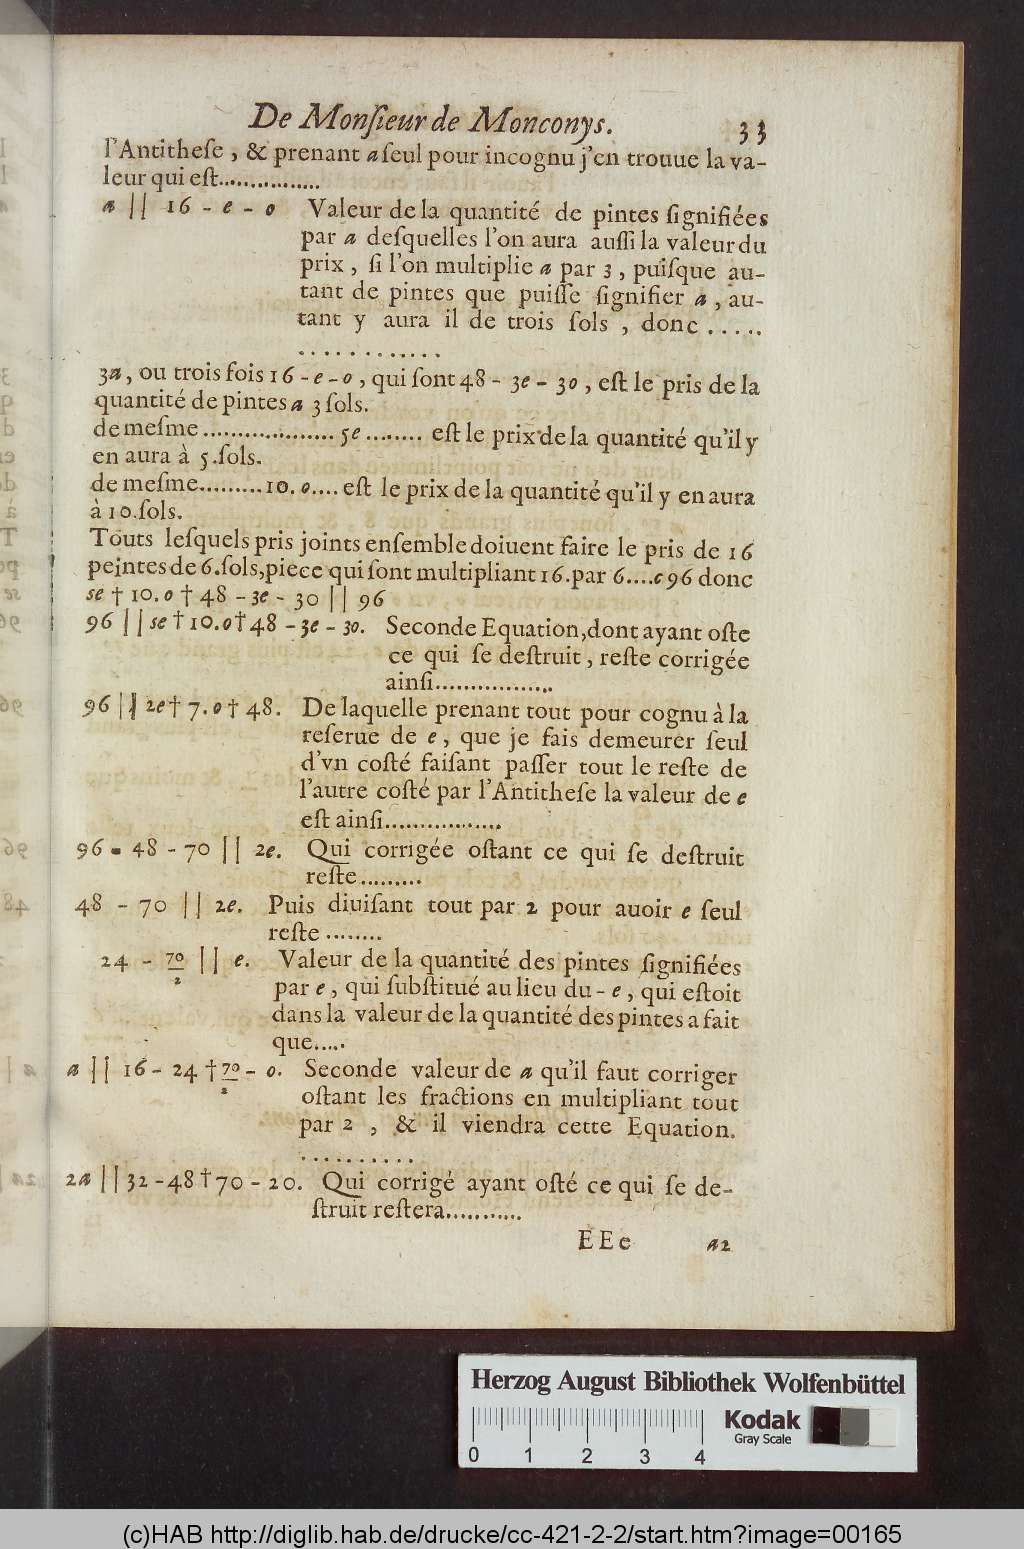 De Monſieur de Monconys. 33
l'Antitheſe, & prenant a ſeul pour incognu j'en trouue la va-
leur qui eſt................
a || 16 - e - o Valeur de la quantité de pintes ſignifiées
par a deſquelles l'on aura auſſi la valeur du
prix, ſi l'on multiplie a par 3, puiſque au-
tant de pintes que puiſſe ſignifier a, au-
tant y aura il de trois ſols, donc .....
............
3a, ou trois fois 16 - e - o, qui ſont 48 - 3e - 30, eſt le pris de la
quantité de pintes a 3 ſols.
de meſme................... 5e ........ eſt le prix de la quantité qu'il y
en aura à 5.ſols.
de meſme.........10. o.... eſt le prix de la quantité qu'il y en aura
à 10.ſols.
Touts leſquels pris joints enſemble doiuent faire le pris de 16
peintes de 6.ſols, piece qui ſont multipliant 16.par 6....c96 donc
se † 10. o † 48 - 3e - 30 || 96
96 || se † 10. o † 48 - 3e - 30. Seconde Equation, dont ayant oſte
ce qui ſe deſtruit, reſte corrigée
ainſi.................
96 || 2e † 7. o † 48. De laquelle prenant tout pour cognu à la
reſerue de e, que je fais demeurer ſeul
d'vn coſté faiſant paſſer tout le reſte de
l'autre coſté par l'Antitheſe la valeur de e
eſt ainſi.................
96 - 48 - 70 || 2e. Qui corrigée oſtant ce qui ſe deſtruit
reſte.........
48 - 70 || 2e. Puis diuiſant tout par 2 pour auoir e ſeul
reſte ........
24 - 70/2 || e. Valeur de la quantité des pintes ſignifiées
par e, qui ſubſtitué au lieu du - e, qui eſtoit
dans la valeur de la quantité des pintes a fait
que.....
a || 16 - 24 † 70/2 - o. Seconde valeur de a qu'il faut corriger
oſtant les fractions en multipliant tout
par 2, & il viendra cette Equation.
...........
2a || 32 - 48 † 70 - 20. Qui corrigé ayant oſté ce qui ſe de-
ſtruit reſtera...........
EEe a2
Herzog August Bibliothek Wolfenbüttel
Kodak
Gray Scale
0 1 2 3 4
(c)HAB http://diglib.hab.de/drucke/cc-421-2-2/start.htm?image=00165